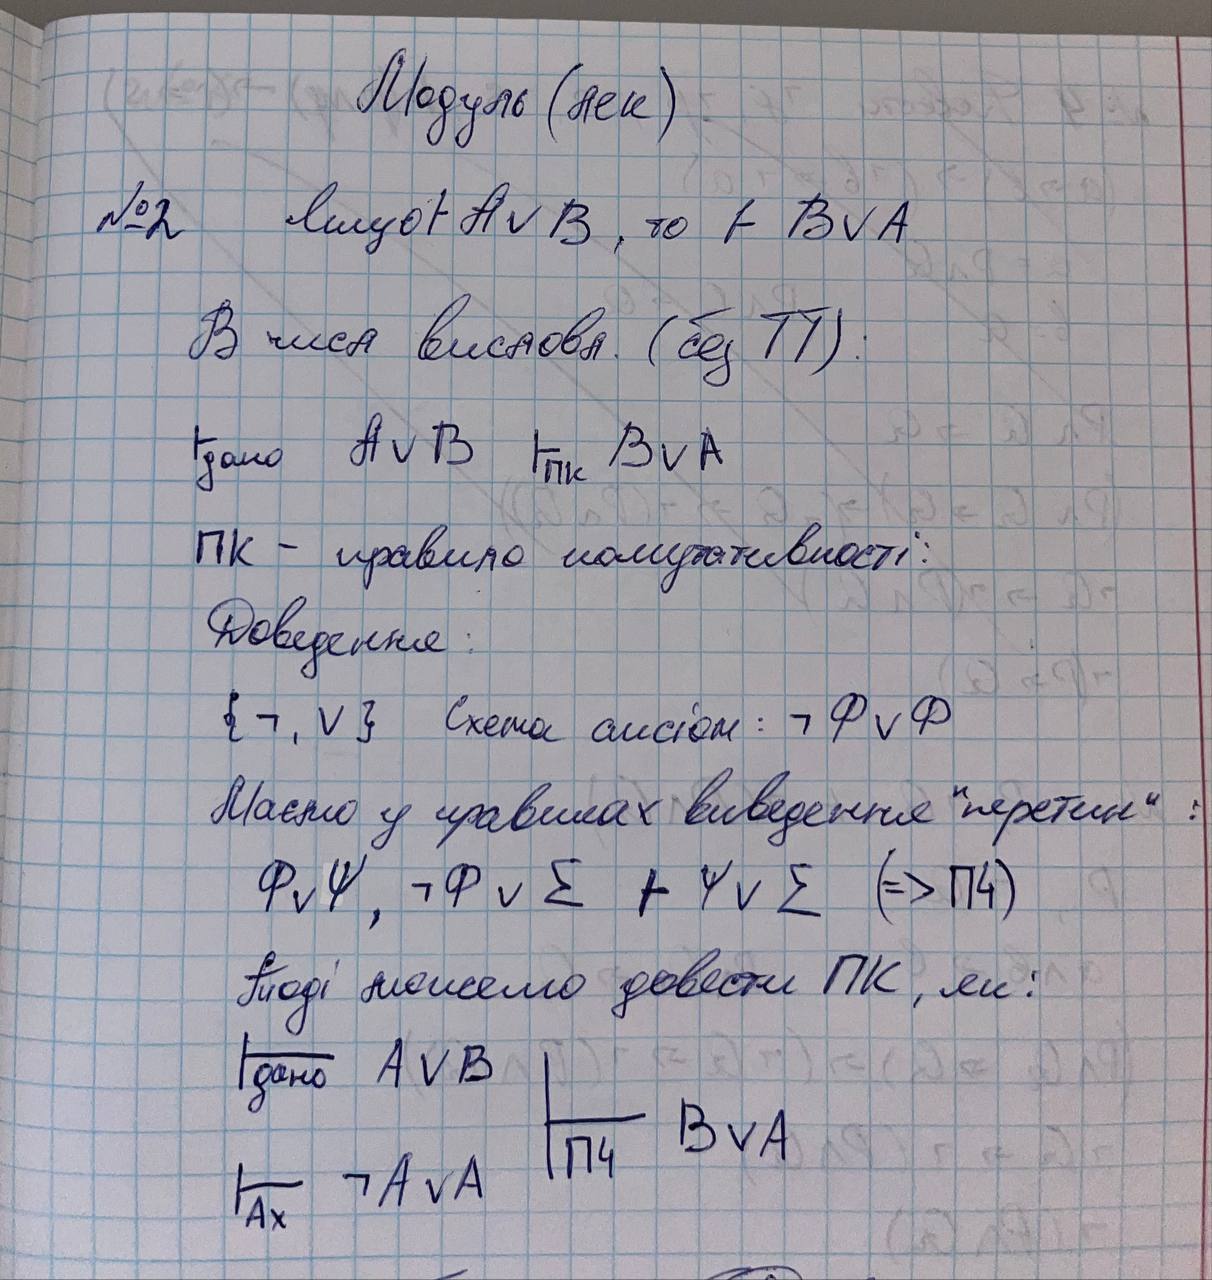 Модуль (лек)
№2 якщо ⊢ A∨B, то ⊢ B∨A
В числ вислова. (без ТТ):
⊢дано A∨B ⊢ПК B∨A
ПК - правило комутативності:
Доведення:
{¬, ∨} Схема аксіом: ¬Ф∨Ф
Маємо у правилах виведення "перетин":
Ф∨Ψ, ¬Ф∨Σ ⊢ Ψ∨Σ (=> П4)
Тоді можемо довести ПК, як:
⊢дано A∨B
⊢П4 B∨A
⊢Ax ¬A∨A